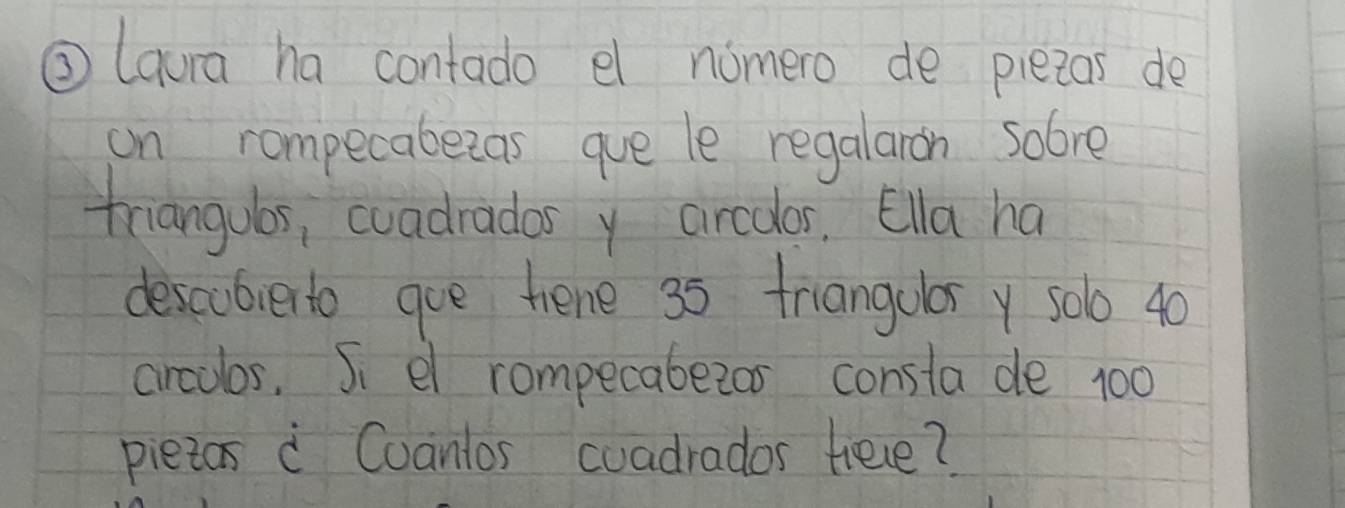 ③ Laura ha contado el número de piezas de
un rompecabezas que le regalarón sobre
triangulos, cuadrados y circulos. Ella ha
descubierto que tiene 35 triangulos y solo 40
circulos. Si el rompecabezas consta de 100
piezas ¿ Cuantos cuadrados tiene?